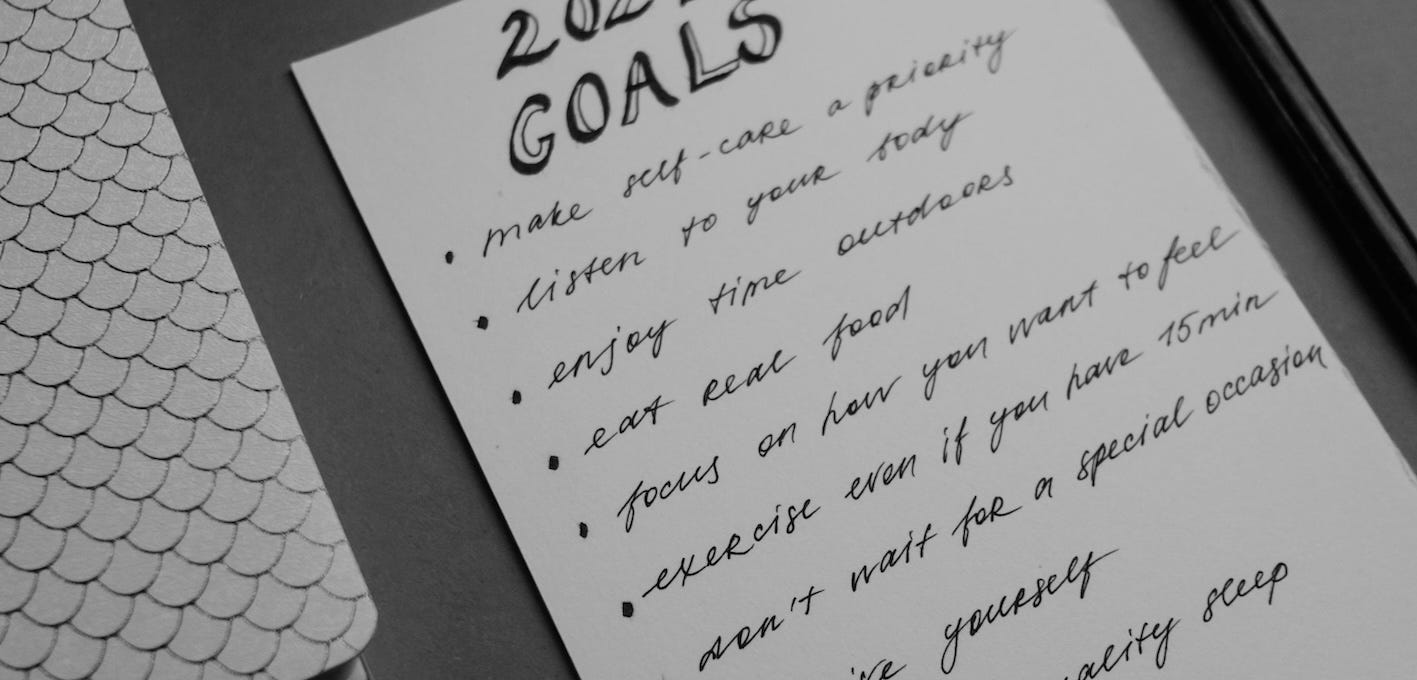 GOALS
• make self-care a priority
• listen to your body
• enjoy time outdoors
• eat real food
• focus on how you want to feel
• exercise even if you have 15min
don't wait for a special occasion
yourself
sleep